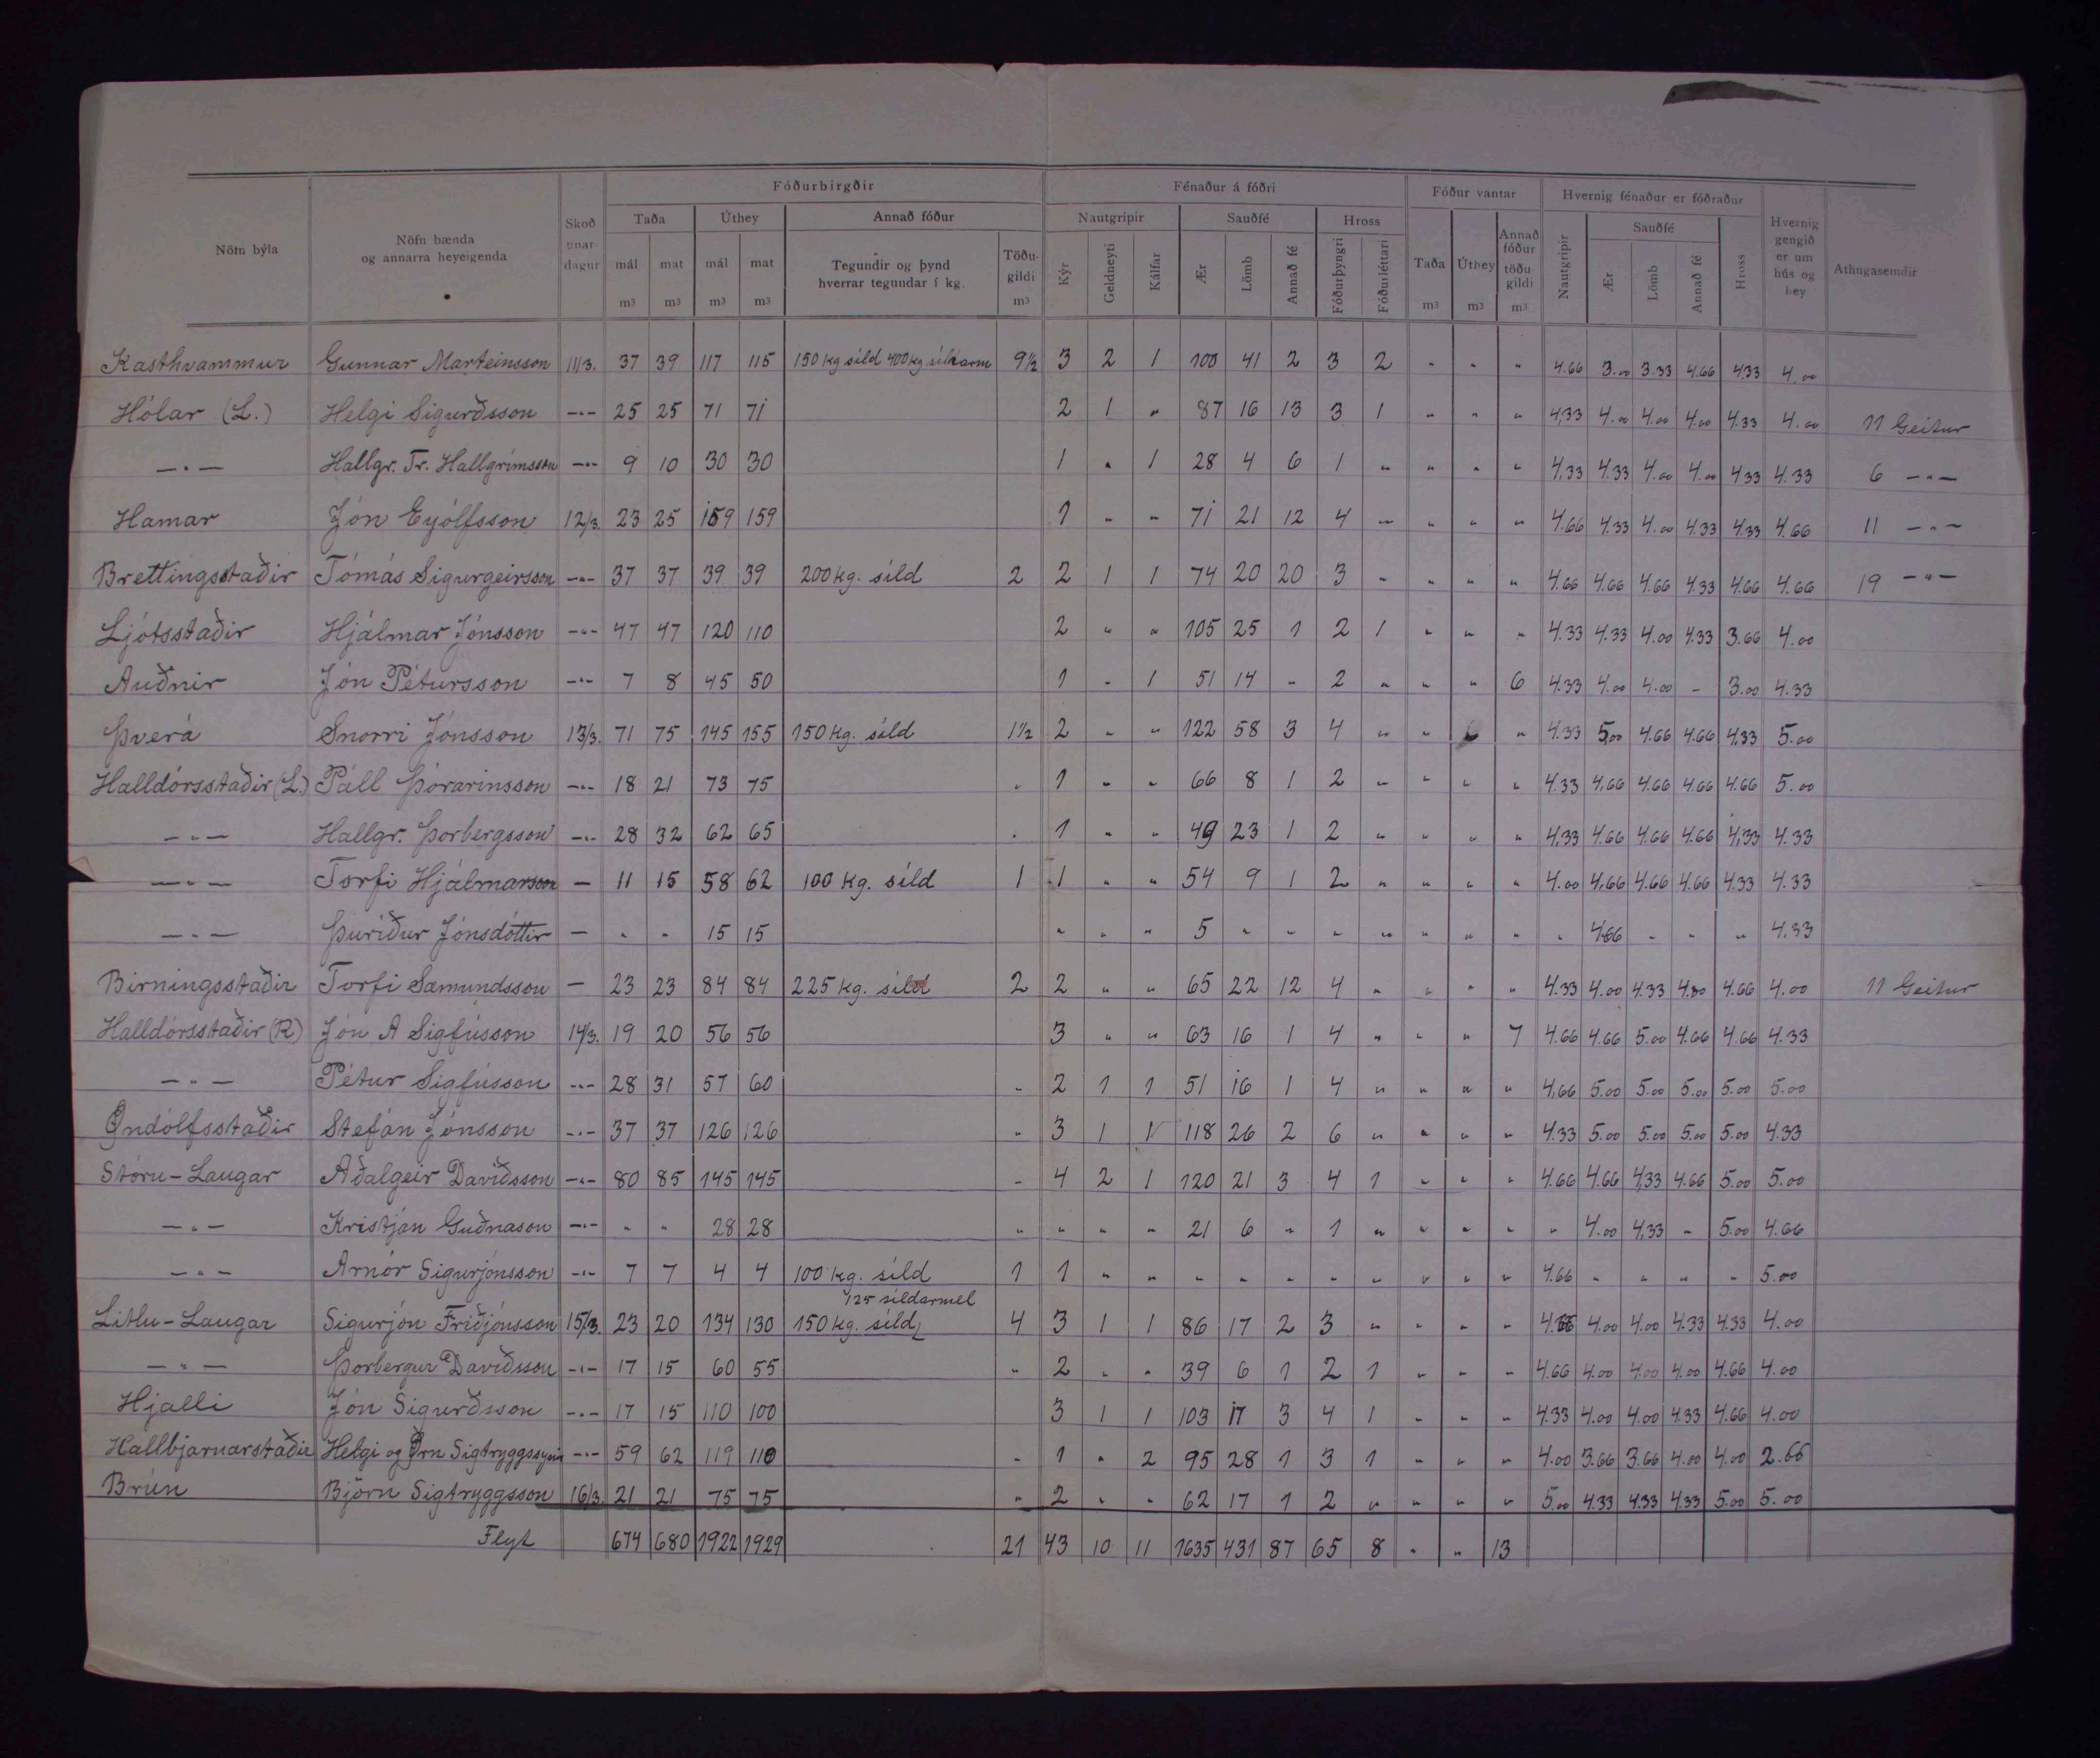 Fóðurbirgðir Fénaður á fóðri Fóður vantar Hvernig fénaður er fóðraður
Nöfn býla Nöfn bænda og annarra heyeigenda Skoð unar dagur Taða Úthey Annað fóður Nautgripir Sauðfé Hross Taða Úthey Annað fóður töðu gildi Nautgripir Sauðfé Hross Hvernig gengið er um hús og hey Athugasemdir
mál mat mál mat Tegundir og þynd hverrar tegundar í kg. Töðu- gildi Kýr Geldneyti Kálfar Ær Lömb Annað fé Fóðurþyngri Fóðurléttari Ær Lömb Annað fé
m³ m³ m³ m³ m³ m³ m³ m³
Kasthvammur Gunnar Marteinsson 11/3. 37 39 117 115 150 kg síld 400 kg 9½ 3 2 1 100 41 2 3 2 " " " 4.66 3.00 3.33 4.66 4.33 4.00
Hólar (L.) Helgi Sigurðsson —"— 25 25 71 71 2 1 " 87 16 13 3 1 " " " 4.33 4.00 4.00 4.00 4.33 4.00 11 Geitur
—"— Hallgr. Tr. Hallgrímsson —"— 9 10 30 30 1 " 1 28 4 6 1 " " " " 4.33 4.33 4.00 4.00 4.33 4.33 6 —"—
Hamar Jón Eyólfsson 12/3. 23 25 159 159 1 " " 71 21 12 4 " " " " 4.66 4.33 4.00 4.33 4.33 4.66 11 —"—
Brettingsstaðir Tómás Sigurgeirsson —"— 37 37 39 39 200 kg. síld 2 2 1 1 74 20 20 3 " " " " 4.66 4.66 4.66 4.33 4.66 4.66 19 —"—
Ljótsstaðir Hjálmar Jónsson —"— 47 47 120 110 2 " " 105 25 1 2 1 " " " 4.33 4.33 4.00 4.33 3.66 4.00
Auðnir Jón Pétursson —"— 7 8 45 50 1 " 1 51 14 " 2 " " " 6 4.33 4.00 4.00 - 3.00 4.33
Þverá Snorri Jónsson 13/3. 71 75 145 155 150 kg. síld 1½ 2 " " 122 58 3 4 " " " 4.33 5.00 4.66 4.66 4.33 5.00
Halldórsstaðir (L.) Páll Þórarinsson —"— 18 21 73 75 " 1 " " 66 8 1 2 " " " " 4.33 4.66 4.66 4.66 4.66 5.00
—"— Hallgr. Þorbergsson —"— 28 32 62 65 " 1 " " 49 23 1 2 " " " " 4.33 4.66 4.66 4.66 4.33 4.33
—"— Torfi Hjálmarsson — 11 15 58 62 100 kg. síld 1 1 " " 54 9 1 2 " " " " 4.00 4.66 4.66 4.66 4.33 4.33
—"— Þuríður Jónsdóttir — " " 15 15 " " " 5 " " " " " " " " 4.66 " " " 4.33
Birningsstaðir Torfi Samundsson — 23 23 84 84 225 kg. síld 2 2 " " 65 22 12 4 " " " " 4.33 4.00 4.33 4.00 4.66 4.00 11 Geitur
Halldórsstaðir (R) Jón A Sigfússon 14/3. 19 20 56 56 3 " " 63 16 1 4 " " " 7 4.66 4.66 5.00 4.66 4.66 4.33
—"— Pétur Sigfússon —"— 28 31 57 60 " 2 1 1 51 16 1 4 " " " " 4.66 5.00 5.00 5.00 5.00 5.00
Öndólfsstaðir Stefán Jónsson —"— 37 37 126 126 " 3 1 1 118 26 2 6 " " " " 4.33 5.00 5.00 5.00 5.00 4.33
Stóru-Laugar Aðalgeir Davíðsson —"— 80 85 145 145 " 4 2 1 120 21 3 4 1 " " " 4.66 4.66 4.33 4.66 5.00 5.00
—"— Kristján Guðnason —"— " " 28 28 " " " " 21 6 " 1 " " " " " 4.00 4.33 - 5.00 4.66
—"— Arnór Sigurjónsson —"— 7 7 4 4 100 kg. síld 1 1 " " " " " " " " " " 4.66 " " " " 5.00
125 síldarmel
Litlu-Laugar Sigurjón Friðjónsson 15/3. 23 20 134 130 150 kg. síld 4 3 1 1 86 17 2 3 " " " " 4.00 4.00 4.33 4.33 4.00
—"— Þorbergur Davíðsson —"— 17 15 60 55 " 2 " " 39 6 1 2 1 " " " 4.66 4.00 4.00 4.00 4.66 4.00
Hjalli Jón Sigurðsson —"— 17 15 110 100 3 1 1 103 17 3 4 1 " " " 4.33 4.00 4.00 4.33 4.66 4.00
Hallbjarnarstaðir Helgi og Örn Sigtryggssynir —"— 59 62 119 110 " 1 " 2 95 28 1 3 1 " " " 4.00 3.66 3.66 4.00 4.00 2.66
Brún Björn Sigtryggsson 16/3. 21 21 75 75 " 2 " " 62 17 1 2 " " " " 5.00 4.33 4.33 4.33 5.00 5.00
Flyt 674 680 1922 1929 21 43 10 11 1635 431 87 65 8 " " 13